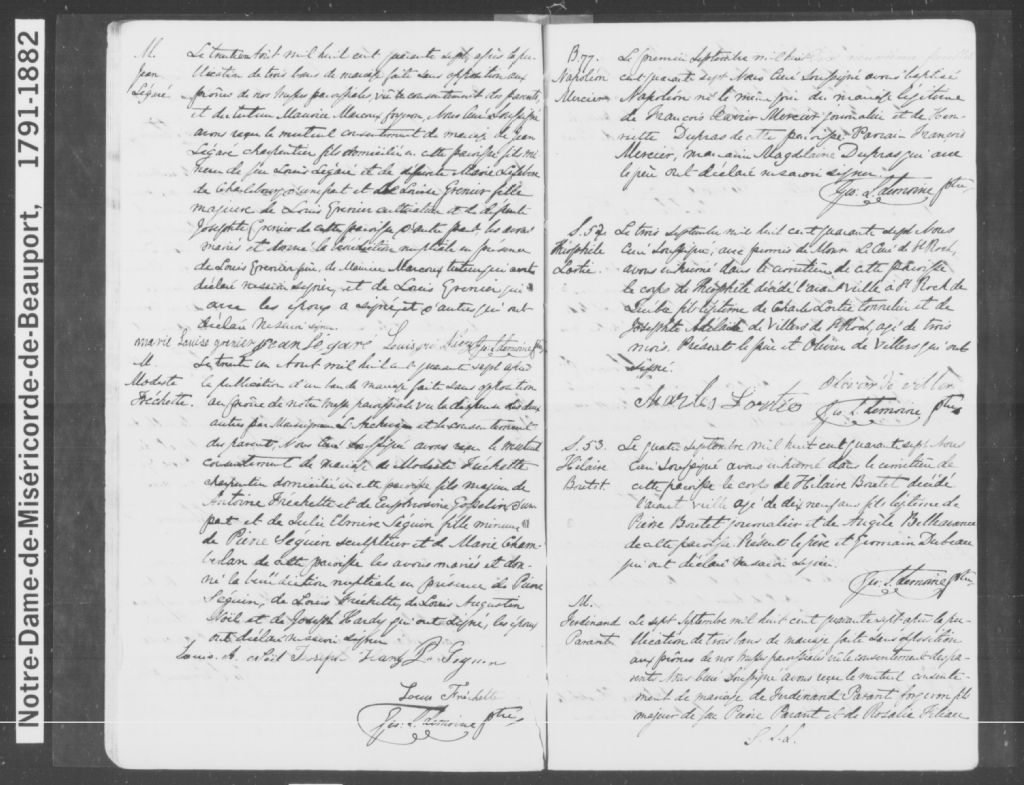 Notre-Dame-de-Miséricorde-de-Beauport, 1791-1882
M.
Jean
Légaré
Le trente Août mil huit cent quarante sept, après la pu-
blication de trois bans de mariage faite sans opposition aux
prônes de nos messes paroissiales, vu le consentement des parents,
et du tuteur Maurice Marcoux forgeron, Nous Curé Soussigné
avons reçu le mutuel consentement de mariage de Jean
Légaré charpentier fils domicilié en cette paroisse fils mi-
neur de feu Louis Légaré et de défunte Marie Lefebvre
de Charlesbourg d'une part et de Louise Grenier fille
majeure de Louis Grenier cultivateur et de défunte
Josephte Grenier de cette paroisse d'autre part les avons
mariés et donné la bénédiction nuptiale en présence
de Louis Grenier père, de Maurice Marcoux tuteur qui ont
déclaré ne savoir signer, et de Louis Grenier qui
avec les époux a signé, et d'autres qui ont
déclaré ne savoir signer.
marie Louise grenier Jean Légaré Louis
Geo. L. Lemoine ptre
M.
Modeste
Fréchette.
Le trente un Août mil huit cent quarante sept après
la publication d'un ban de mariage fait sans opposition
au prône de notre messe paroissiale vu la dispense des deux
autres par Monseigneur L'Archevêque et le consentement
des parents, Nous Curé Soussigné avons reçu le mutuel
consentement de mariage de Modeste Fréchette
charpentier domicilié en cette paroisse fils majeur de
Antoine Fréchette et de Euphrosine Gosselin d'une
part et de Julie Elmire Séguin fille mineure
de Pierre Séguin sculpteur et de Marie Cham-
berlan de cette paroisse les avons mariés et don-
né la bénédiction nuptiale en présence de Pierre
Séguin, de Louis Fréchette, de Louis Augustin
Noël et de Joseph Hardy qui ont signé, les époux
ont déclaré ne savoir signer
Louis A. Noël Joseph Hardy P. Seguin
Louis Fréchette
Geo. L. Lemoine ptre
B.77.
Napoléon
Mercier
Le premier Septembre mil huit
cent quarante sept Nous Curé Soussigné avons baptisé
Napoléon né le même jour du mariage légitime
de François Xavier Mercier journalier et de Hen-
riette Dupras de cette paroisse Parrain François
Mercier, marraine Magdelaine Dupras qui avec
le père ont déclaré ne savoir signer
Geo. L. Lemoine ptre
S.52
Théophile
Lortie.
Le trois Septembre mil huit cent quarante sept Nous
Curé Soussigné, avec permis de Monsr Le Curé de St Roch,
avons inhumé dans le cimetière de cette paroisse
le corps de Théophile décédé l'avant veille à St Roch de
Québec fils légitime de Charles Lortie tonnelier et de
Josephte Adélaide de Villers de St Roch, agé de trois
mois. Présent le père et Olivier de Villers qui ont
signé.
Olivier de villers
Charles Lortie
Geo. L. Lemoine ptre
S.53.
Hilaire
Boutet.
Le quatre Septembre mil huit cent quarante sept Nous
Curé Soussigné avons inhumé dans le cimetière de
cette paroisse le corps de Hilaire Boutet décédé
l'avant veille agé de dix neuf ans fils légitime de
Pierre Boutet journalier et de Angèle Belleavance
de cette paroisse Présent le père et Germain Dubeau
qui ont déclaré ne savoir signer.
Geo. L. Lemoine ptre
M.
Ferdinand
Parant.
Le sept Septembre mil huit cent quarante sept après la pu-
blication de trois bans de mariage fait sans opposition
aux prônes de nos messes paroissiales vu le consentement des pa-
rents Nous Curé Soussigné avons reçu le mutuel consente-
ment de mariage de Ferdinand Parant forgeron fils
majeur de feu Pierre Parant et de Rosalie Filiau